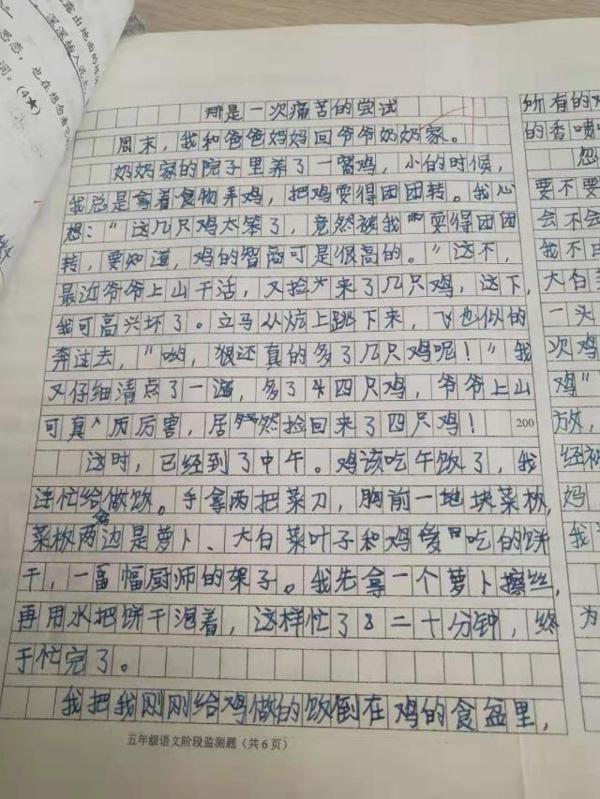 露出地面的
深深插入泥土
思念，也在想念着
润。(4★)
那是一次痛苦的尝试
周末，我和爸爸妈妈回爷爷奶奶家。
奶奶家的院子里养了一窝鸡，小的时候，
我总是拿着食物弄鸡，把鸡耍得团团转。我心
想：“这几只鸡太笨了，竟然被我耍得团团
转，要知道，鸡的智商可是很高的。”这不，
最近爷爷上山干活，又捡来了几只鸡，这下，
我可高兴坏了。立马从炕上跳下来，飞也似的
奔过去，“哟，狠还真的多了几只鸡呢！”我
又仔细清点了一遍，多了四只鸡，爷爷上山
可真厉厉害，居然捡回来了四只鸡！ 200
这时，已经到了中午。鸡该吃午饭了，我
连忙给鸡做饭。手拿两把菜刀，胸前一地块菜板，
菜板两边是萝卜、大白菜叶子和鸡爱吃的饼
干，一副幅厨师的架子。我先拿一个萝卜擦丝，
再用水把饼干泡着，这样忙了二十分钟，终
于忙完了。
我把我刚刚给鸡做的饭倒在鸡的食盆里，
五年级语文阶段监测题（共6页）
所有的
的香喷
忽
要不要
会不会
我不由
大白菜
一头
次鸡
鸡”
放，
经被
妈
我
为